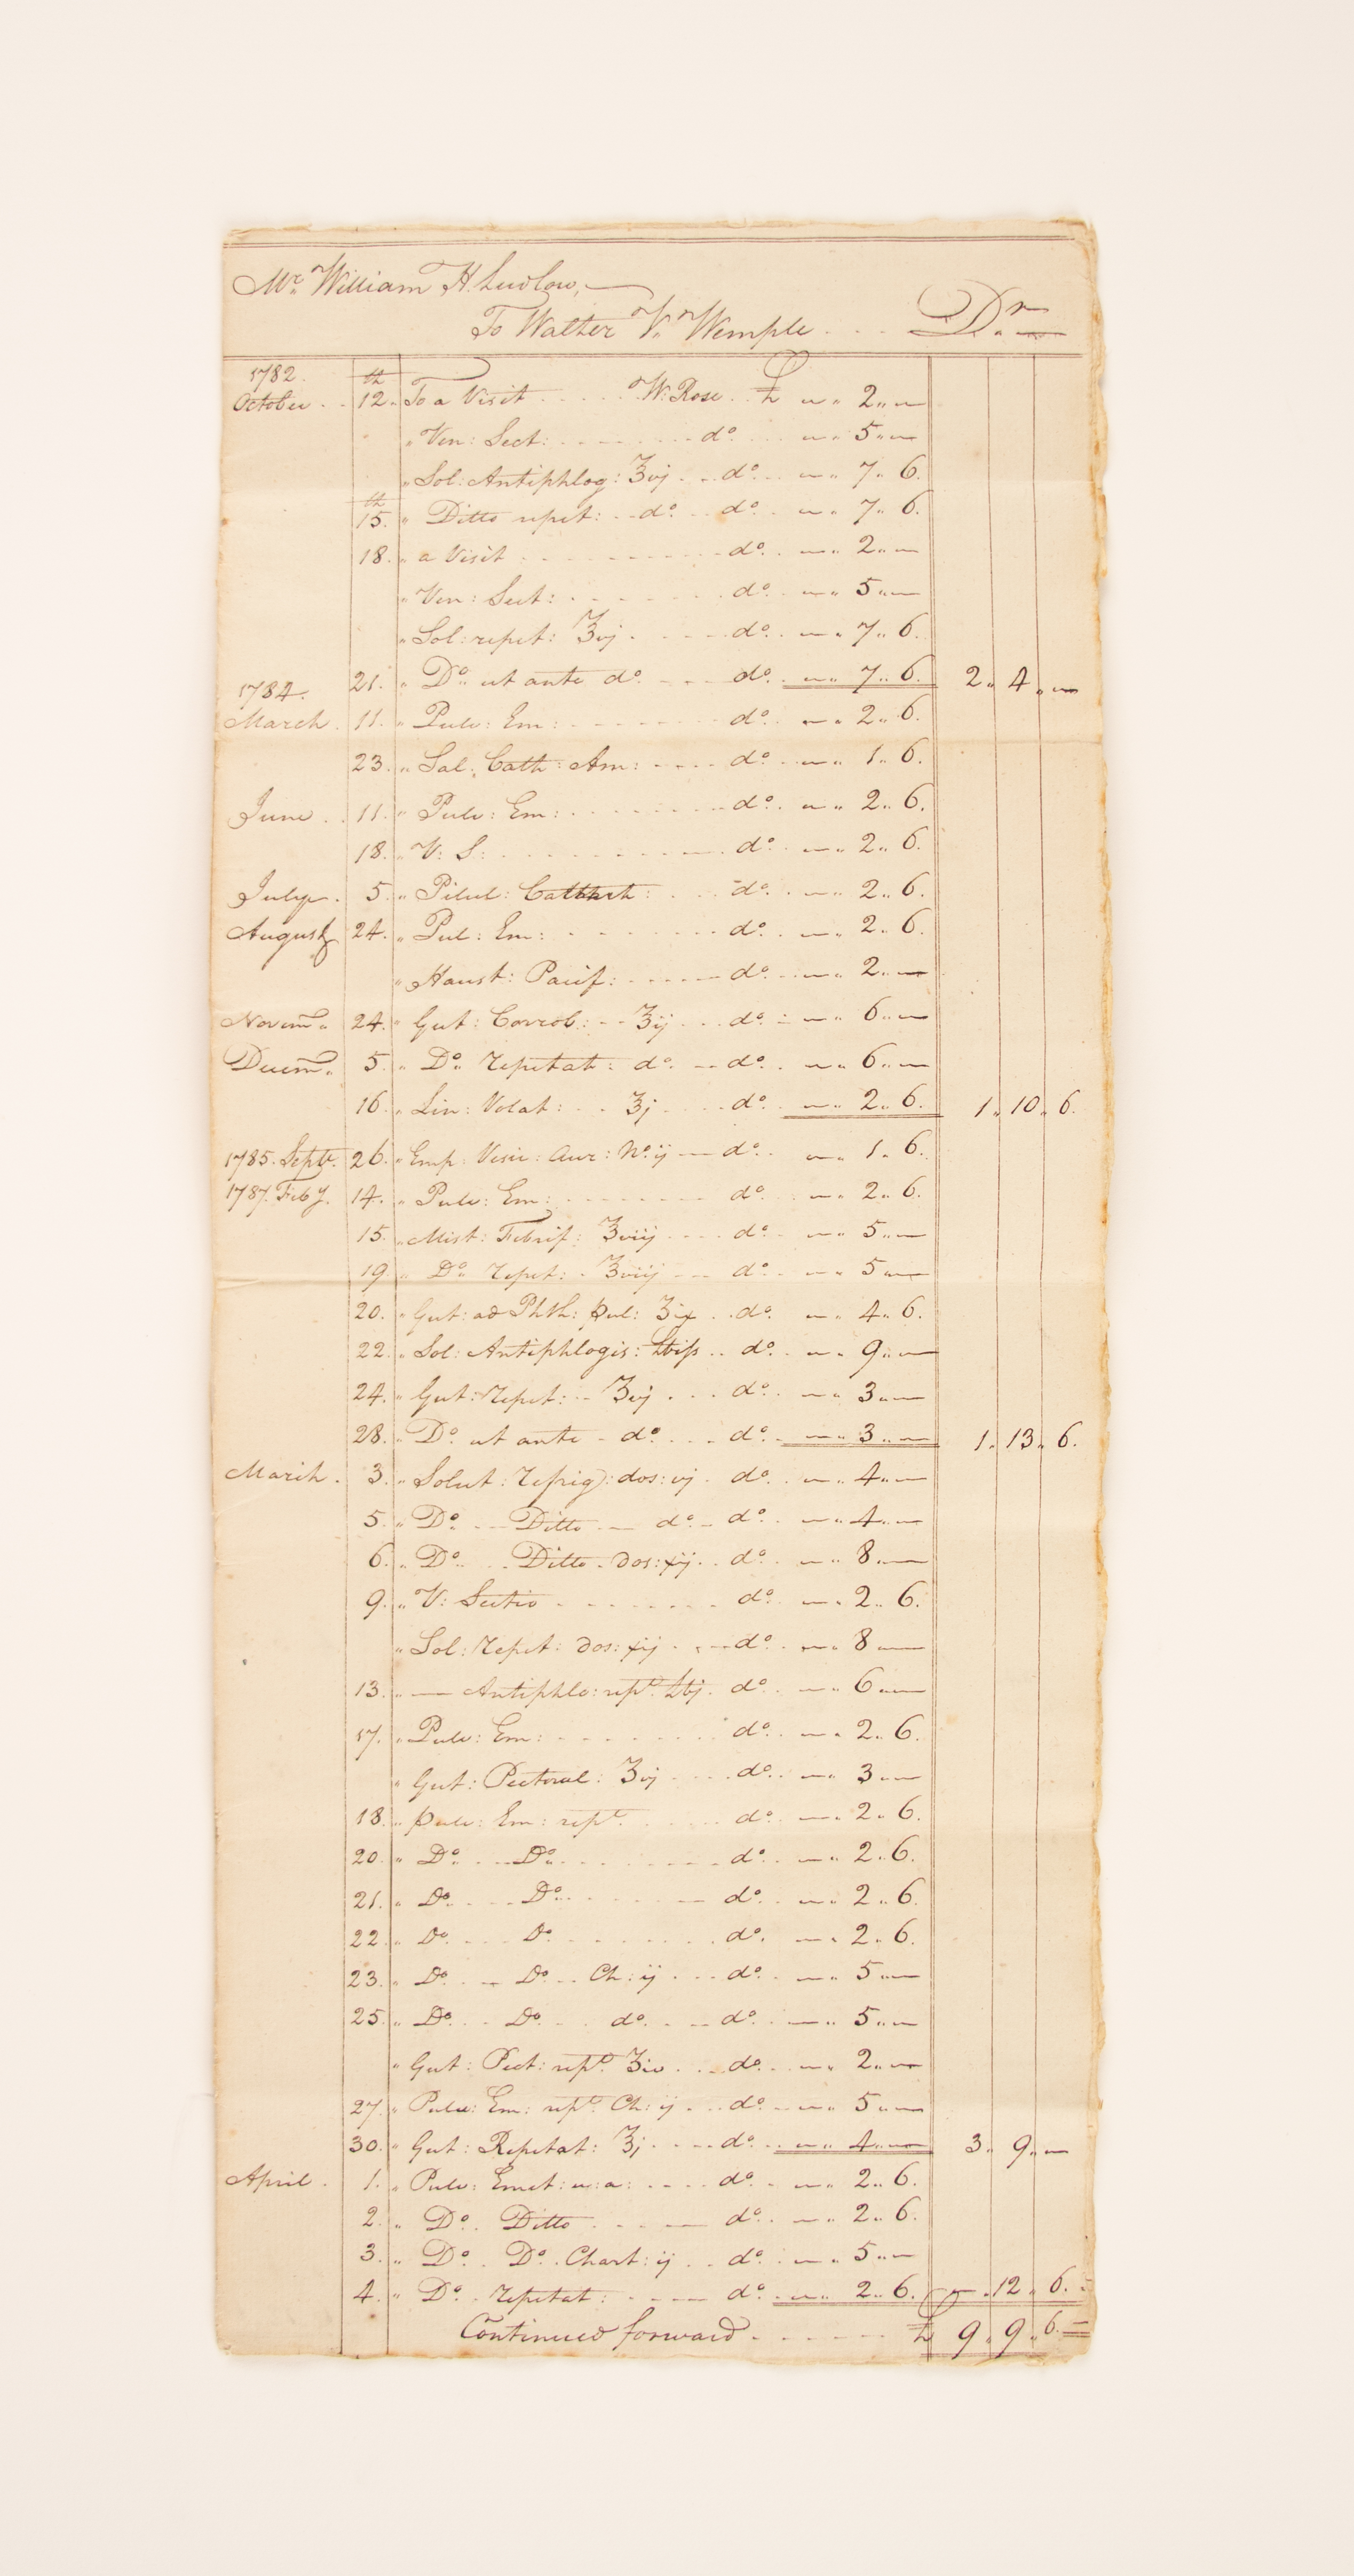 Mr. William H. Ludlow,
To Walter V. Wemple . . . Dr.
1782.
October . . 12th. To a Visit . . . . . W: Rose . . £ " 2 " —
" Ven: Sect: . . . . . do. . . — " 5 " —
" Sol: Antiphlog: ʒvj . . . do. . . — " 7 " 6.
15th. " Ditto repet: . . do. . . do. . — " 7 " 6.
18. " a Visit . . . . . do. . — " 2 " —
" Ven: Sect: . . . . . do. . — " 5 " —
" Sol: repet: ʒvj . . . . do. . — " 7 " 6.
21. " Do. ut ante do. . . . do. . — " 7 " 6. 2 " 4 " —
1784.
March . 11. " Pulv: Em: . . . . . do. . — " 2 " 6.
23. " Sal: Cath: Am: . . . . do. . — " 1 " 6.
June . . 11. " Pulv: Em: . . . . . do. . — " 2 " 6.
18. " V: S: . . . . . do. . — " 2 " 6.
July . 5. " Pilul: Cathart: . . . do. . — " 2 " 6.
August 24. " Pul: Em: . . . . . do. . — " 2 " 6.
" Haust: Pacif: . . . . . do. . — " 2 " —
Novemr. 24. " Gut: Corrob: . . ʒij . . . do. . — " 6 " —
Decemr. 5. " Do. repetat: do. . . do. . — " 6 " —
16. " Lin: Volat: . . ʒj . . . do. . — " 2 " 6. 1 " 10 " 6.
1785. Septr. 26. " Emp: Vesic: Aur: No. ij — do. . — " 1 " 6.
1787. Feby. 14. " Pulv: Em: . . . . . do. . — " 2 " 6.
15. " Mist: Febrif: ʒviij . . . do. . — " 5 " —
19 " Do. repet: . ʒviij . . . do. . — " 5 " —
20. " Gut: ad Phth: pul: ʒix . . do. — " 4 " 6.
22. " Sol: Antiphlogis: ℔iſs . . do. . — " 9 " —
24. " Gut: repet: . . ʒvj . . . do. . — " 3 " —
28. " Do. ut ante . do. . . . do. . — " 3 " — 1 " 13 " 6.
March . 3. " Solut: refrig: dos: vj . do. — " 4 " —
5. " Do. . . Ditto . . do. . do. . — " 4 " —
6. " Do. . . Ditto . dos: xij . . do. . — " 8 " —
9. " V: Sectio . . . . . do. . — " 2 " 6.
" Sol: repet: dos: xij . . . do. . — " 8 " —
13. " — Antiphlo: rept. ℔j. do. . — " 6 " —
17. " Pulv: Em: . . . . . do. . — " 2 " 6.
" Gut: Pectoral: ʒvj . . . do. . — " 3 " —
18. " Pulv: Em: rept. . . . . do. . — " 2 " 6.
20. " Do. . . Do. . . . . . do. . — " 2 " 6.
21. " Do. . . Do. . . . . . do. . — " 2 " 6.
22. " Do. . . Do. . . . . . do. . — " 2 " 6.
23. " Do. . . Do. . . Ch: ij . . . do. . — " 5 " —
25. " Do. . . Do. . . do. . . . do. . — " 5 " —
" Gut: Pect: rept. ʒiv . . . do. . — " 2 " —
27. " Pulv: Em: rept. Ch: ij . . . do. . — " 5 " —
30. " Gut: Repetat: ʒj . . . do. . — " 4 " — 3 " 9 " —
April . 1. " Pulv: Emet: u: a: . . . . do. . — " 2 " 6.
2. " Do. . Ditto . . . . do. . — " 2 " 6.
3. " Do. . Do. . Chart: ij . . do. . — " 5 " —
4. " Do. . repetat: . . . . do. . — " 2 " 6. — " 12 " 6.
Continued forward . . . . . £ 9 " 9 " 6.